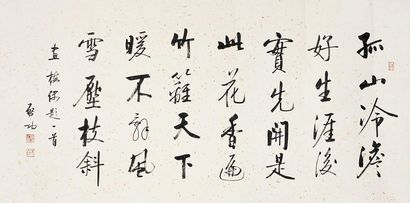 孤山冷澹
好生涯後
實先開是
此花香遍
竹籬天下
暖不辭風
雪壓枝斜
畫梅偶題一首
啟功